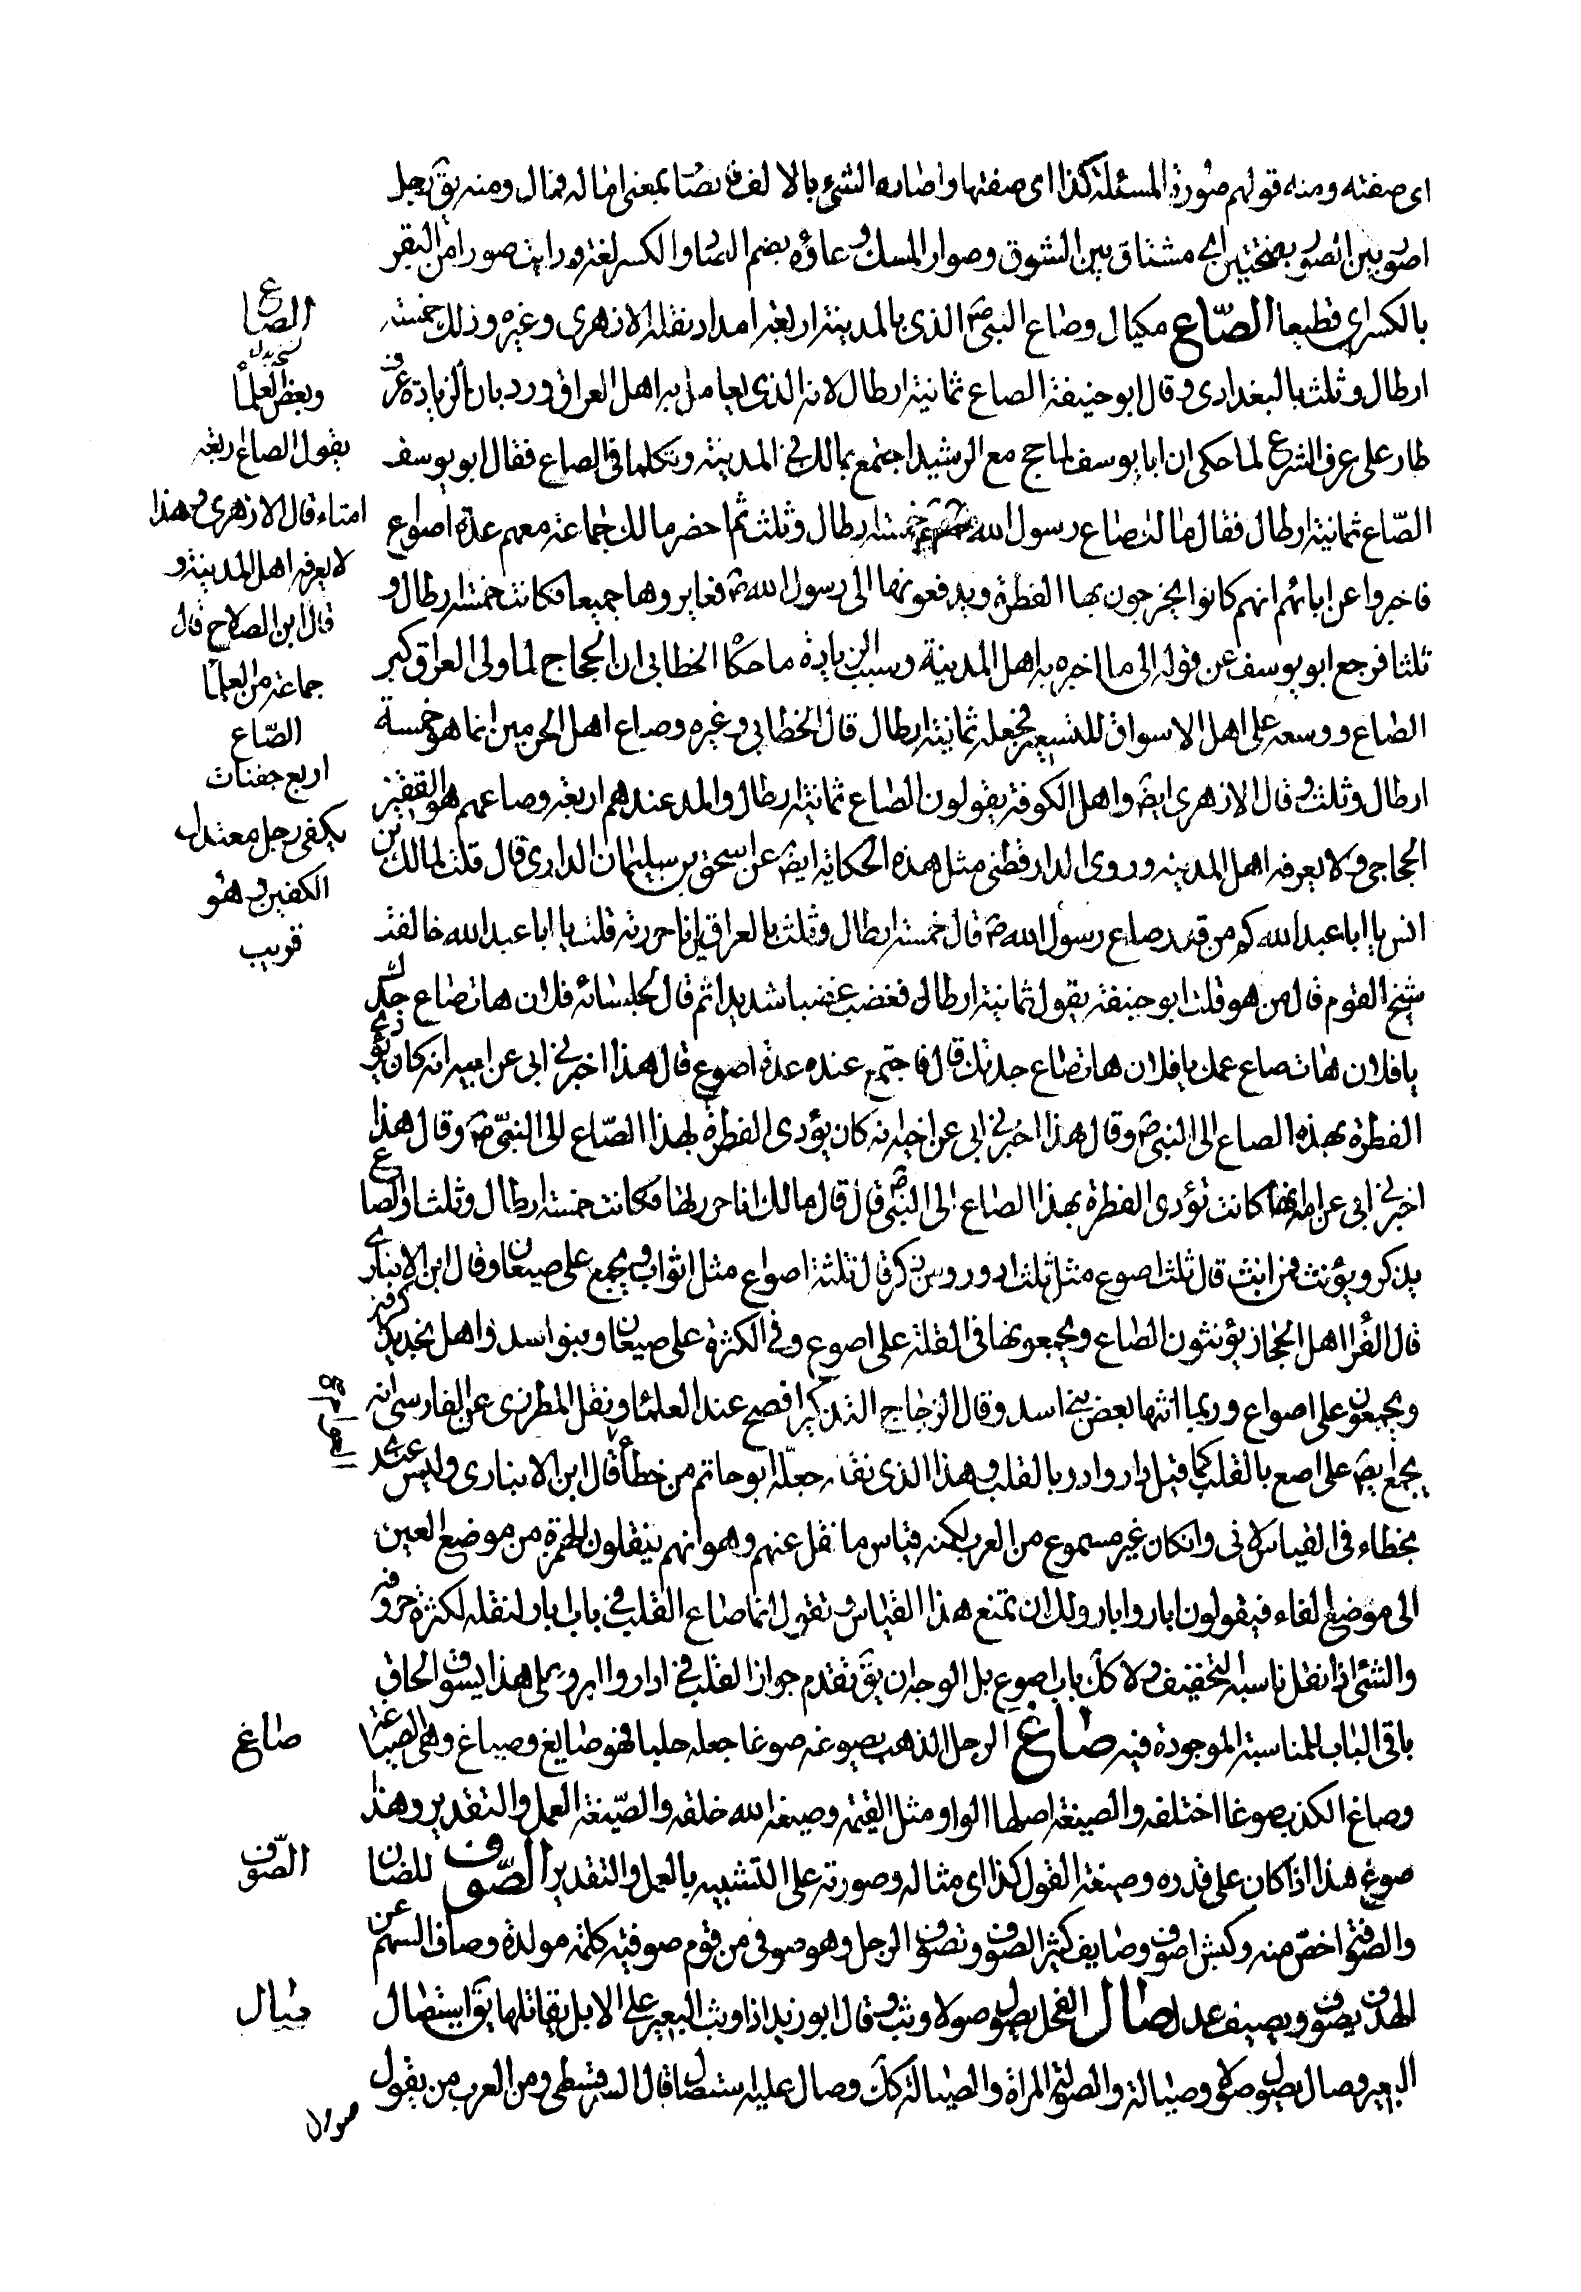 اى صفته ومنه قولهم صورة المسئلة كذا اى صفتها واصاره الشىء بالالف فانصار بمعنى اماله فمال ومنه يق رجل
اصور بين الصور بفتحتين اى مشتاق بين الشوق وصوار المسك وعاؤه بضم الصاد والكسر لغة ورايت صورا من البقر
بالكسر اى قطيعا الصّاع مكيال وصاع النبى ص الذى بالمدينة اربعة امداد نقله الازهرى وغيره وذلك خمسة
ارطال وثلث بالبغدادى وقال ابو حنيفة الصاع ثمانية ارطال لانه الذى يعامل به اهل العراق ورد بان الزيادة عرف
طار على عرف الشرع لما حكى ان ابا يوسف لما حج مع الرشيد اجتمع بمالك فى المدينة وتكلما فى الصاع فقال ابو يوسف
الصّاع ثمانية ارطال فقال مالك صاع رسول الله خمسة ارطال وثلث ثم احضر مالك جماعة معهم عدة اصواع
فاخبروا عن ابائهم انهم كانوا يخرجون بها الفطرة ويدفعونها الى رسول الله ص فعايروها جميعا فكانت خمسة ارطال و
ثلثا فرجع ابو يوسف عن قوله الى ما اخبره به اهل المدينة وسبب الزيادة ما حكا الخطابى ان الحجاج لما ولى العراق كبر
الصاع ووسعه على اهل الاسواق للتسعير فجعله ثمانية ارطال قال الخطابى وغيره وصاع اهل الحرمين انما هو خمسة
ارطال وثلث وقال الازهرى ايض واهل الكوفة يقولون الصاع ثمانية ارطال والمد عندهم اربعة وصاعهم هو القفيز
الحجاجى ولا يعرفه اهل المدينه وروى الدارقطنى مثل هذه الحكاية ايض عن اسحق بن سليمان الدارى قال قلت لمالك بن
انس يا ابا عبد الله كم من قدر صاع رسول الله ص قال خمسة ارطال وثلث بالعراقى انا حزرته قلت يا ابا عبد الله خالفت
شيخ القوم قال من هو قلت ابو حنيفة يقول ثمانية ارطال فغضب غضبا شديدا ثم قال لجلسائه فلان هات صاع جدك
يا فلان هات صاع عمك يا فلان هات صاع جدتك قال فاجتمع عنده عدة اصوع قال هذا اخبرنى ابى عن ابيه انه كان يؤدى
الفطرة بهذه الصاع الى النبى ص وقال هذا اخبرنى ابى عن اخيه انه كان يؤدى الفطرة بهذا الصّاع الى النبىّ ص وقال هذا
اخبرنى ابى عن امه انها كانت تؤدى الفطرة بهذا الصاع الى النبى ص قال قال مالك انا حزرتها فكانت خمسة ارطال وثلثا والصاع
يذكر ويؤنث فمن انث قال ثلث اصوع مثل ثلث ادور ومن ذكر قال ثلثة اصواع مثل اثواب ويجمع على صيعان وقال ابن الانبارى
قال الفرا اهل الحجاز يؤنثون الصاع ويجمعونها فى القلة على اصوع وفى الكثرة على صيعان وبنو اسد واهل نجد يذكرونه
ويجمعون على اصواع وربما انثها بعض بنى اسد وقال الزجاج التذكير افصح عند العلماء ونقل المطرزى عن الفارسى انه
يجمع ايض على اصع بالقلب كما قيل دار وادر بالقلب وهذا الذى نقله جعله ابو حاتم من خطأ قال ابن الانبارى وليس عندى
بخطاء فى القياس لانه وان كان غير مسموع من العرب لكنه قياس ما نقل عنهم وهو انهم ينقلون الهمزة من موضع العين
الى موضع الفاء فيقولون ابار وابار ولك ان تمنع هذا القياس وتقول انما صاع القلب فى باب ابار لنقله لكثرة حروفه
والشئ اذا نقل ناسبه التخفيف ولا كك باب اصوع بل الوجه ان يق تقدم جواز القلب فى ادار واابر وعلى هذا يسوق الحاق
باقى الباب للمناسبة الموجودة فيه صاغ الرجل الذهب يصوغه صوغا جعله حليا فهو صايغ وصياغ وهى الصياغة
وصاغ الكذب صوغا اختلقه والصيغة اصلها الواو مثل القيمة وصيغه الله خلقه والصّيغة العمل والتقدير وهذا
صوغ هذا اذا كان على قدره وصيغة القول كذا اى مثاله وصورته على التشبيه بالعمل والتقدير الصّوف للضان
والصوفة اخصّ منه وكبش اصوف وصايف كثير الصوف وتصوف الرجل وهو صوفى من قوم صوفية كلمة مولدة وصاف السهم عن
الهدف يصوف ويصيف عدل صال الفحل يصول صولا وثب وقال ابو زيد اذا وثب البعير على الابل يقاتلها يق استصال
البعير وصال يصول صولا وصيالة والصولة المراة والصيالة كك وصال عليه استطال قال السرقسطى ومن العرب من يقول
صول
الصاع
وبعض العلما
يقول الصاع اربعة
امناء قال الازهرى وهذا
لا يعرفه اهل المدينة و
قال ابن الصلاح قال
جماعة من العلما
الصّاع
اربع حفنات
بكفى رجل معتدل
الكفين وهو
قريب
صاغ
الصّوف
صال